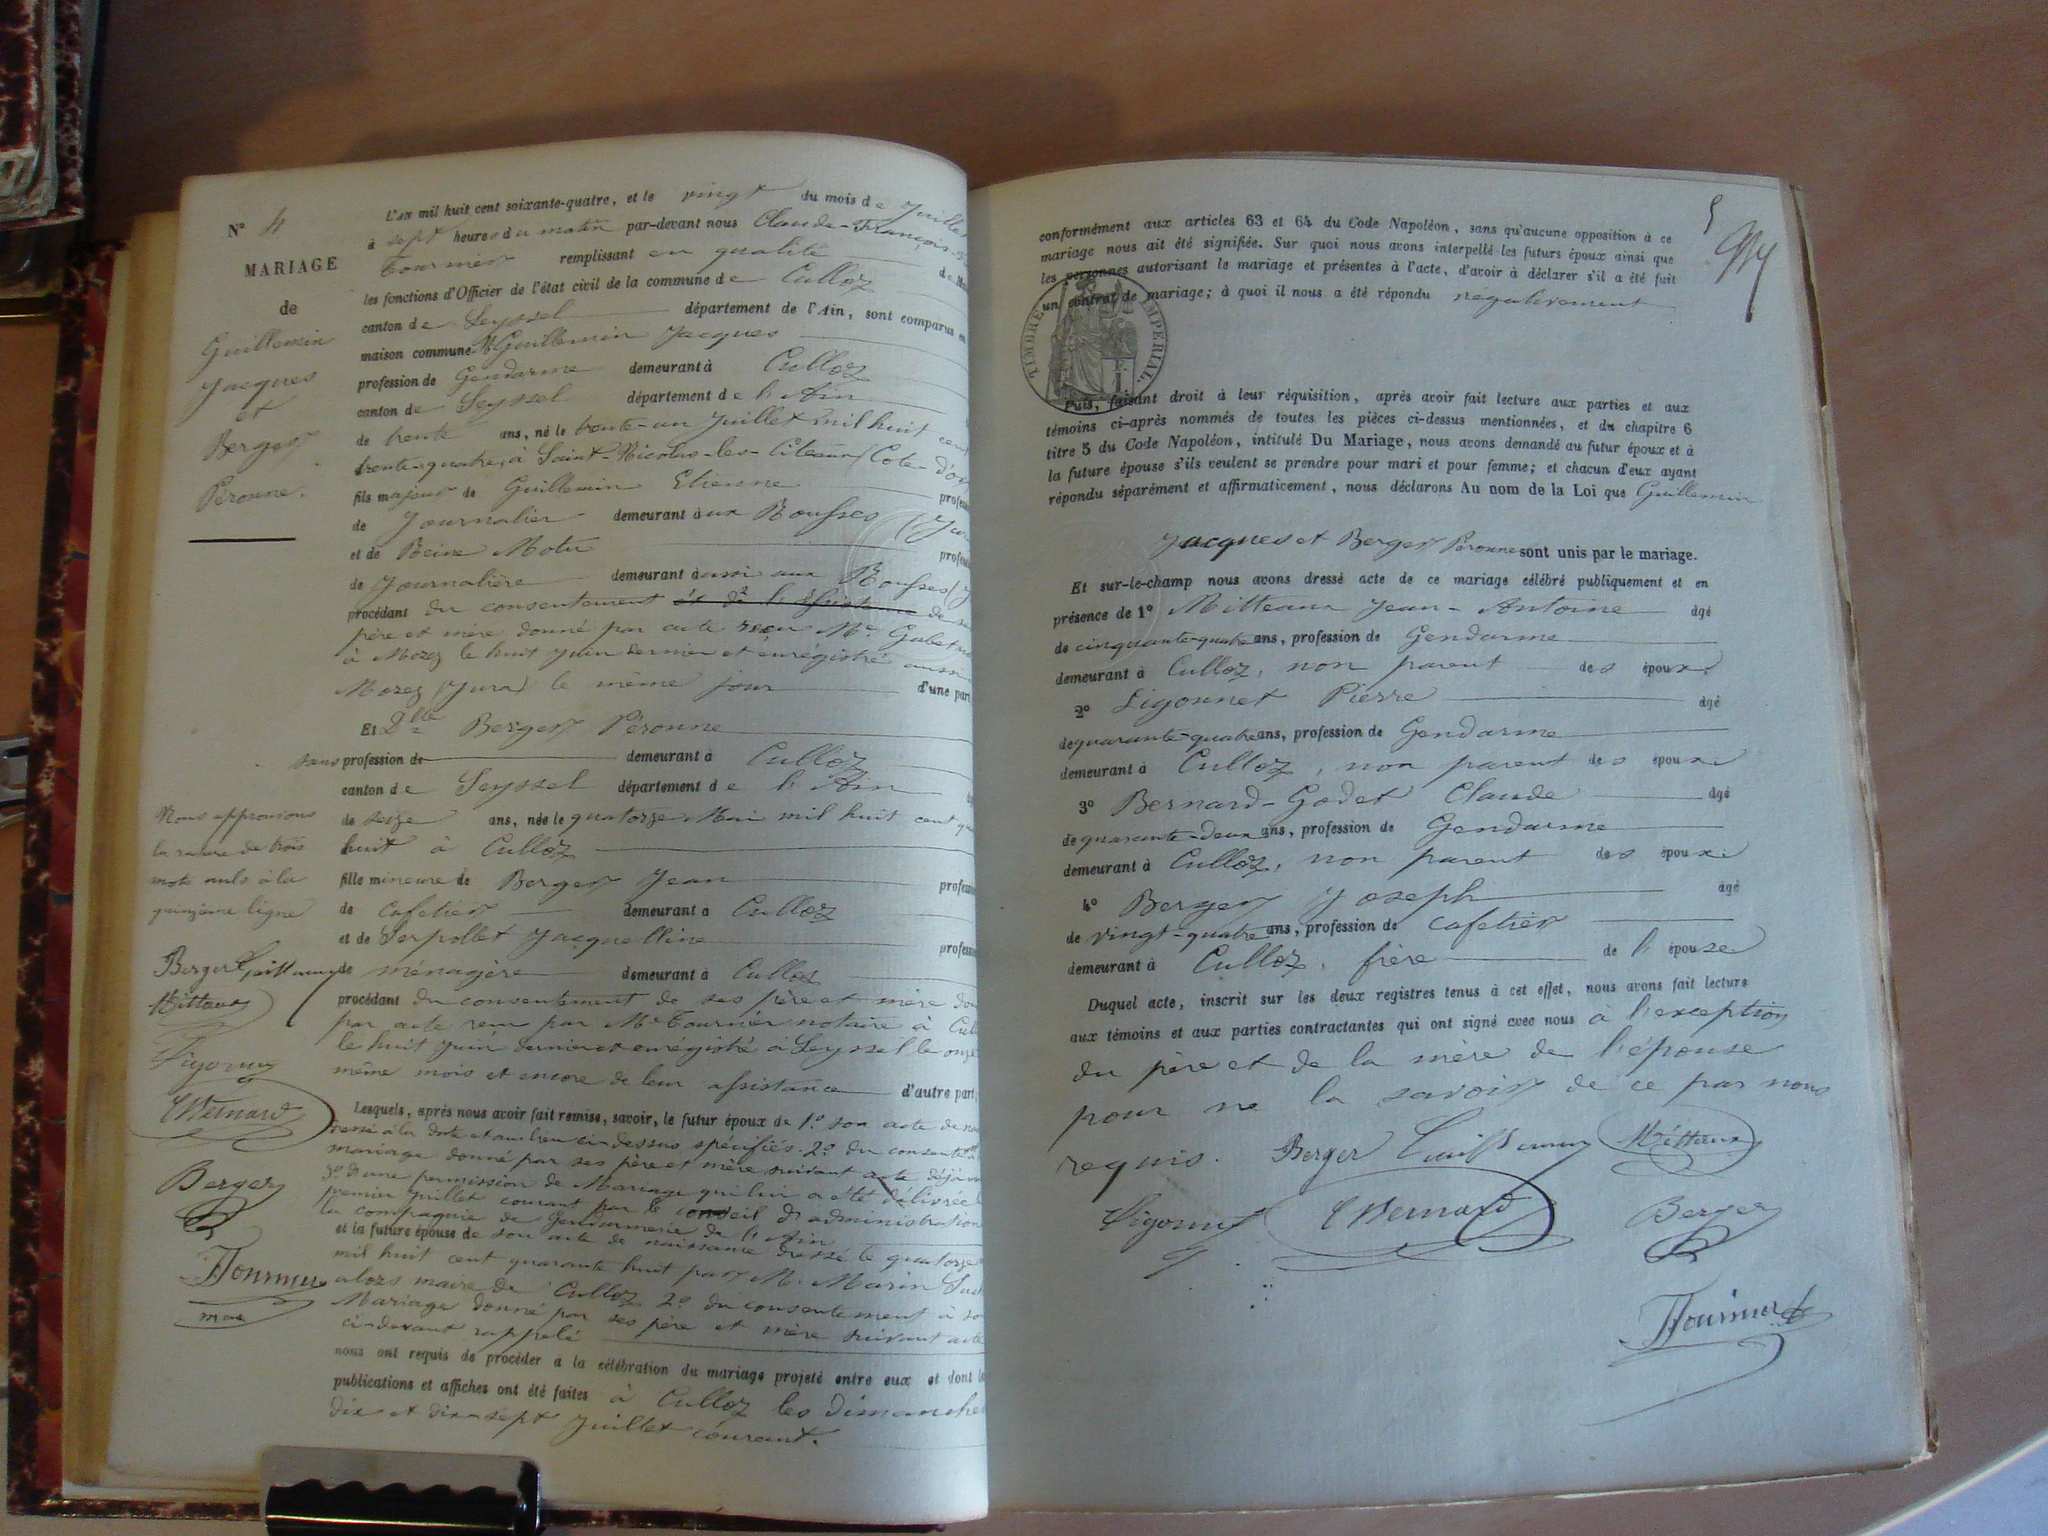 N° 4
MARIAGE
de
Guillemin
Jacques
et
Berger
Péronne.
L'AN mil huit cent soixante-quatre, et le vingt du mois de Juillet
à sept heures du matin par-devant nous Claude-François
Tournier remplissant en qualité de
les fonctions d'Officier de l'état civil de la commune de Culloz
canton de Seyssel département de l'Ain, sont comparus en
maison commune Mr Guillemin Jacques
profession de Gendarme demeurant à Culloz
canton de Seyssel département de l'Ain
de trente ans, né le trente-un Juillet mil huit cent
trente-quatre, à Saint-Nicolas-les-Citeaux (Cote-d'or
fils majeur de Guillemin Etienne
de Journalier demeurant aux Rousses
et de Reine Motu
de Journalière demeurant aussi aux Rousses
procédant du consentement et de l'assistance de
père et mère donné par acte reçu Me
à Morez le huit Juin dernier et enrégistré aussi
Morez (Jura) le même jour d'une part
Et Dlle Berger Péronne
sans profession de demeurant à Culloz
canton de Seyssel département de l'Ain
de seize ans, née le quatorze Mai mil huit cent
huit à Culloz
fille mineure de Berger Jean
de Cafetier demeurant à Culloz
et de Serpollet Jacquelline
de ménagère demeurant à Culloz
procédant du consentement de ses père et mère
par acte reçu par Me Tournier notaire à
le huit Juin dernier et enrégistré à Seyssel le onze
même mois et encore de leur assistance d'autre part,
Lesquels, après nous avoir fait remise, savoir, le futur époux de 1° son acte de
à la date et au lieu ci-dessus spécifiés. 2° du
mariage donné par ses père et mère suivant acte déjà
3° d'une permission de Mariage qui lui a été délivrée
premier Juillet courant par le conseil d'administration
la compagnie de Gendarmerie de l'Ain
et la future épouse de son acte de naissance dressé le quatorze
mil huit cent quarante huit par M. Marin
alors maire de Culloz 2° du consentement à
Mariage donné par ses père et mère suivant acte
ci-devant rappelé
nous ont requis de procéder à la célébration du mariage projeté entre eux et dont
publications et affiches ont été faites à Culloz les dimanches
dix et dix-sept Juillet courant.
Nous approuvons
la rature de trois
mots nuls à la
quinzième ligne
Berger Guillemin
Mitteaux
Ligonnet
C Bernard
Berger
Tournier
mre
5
conformément aux articles 63 et 64 du Code Napoléon, sans qu'aucune opposition à ce
mariage nous ait été signifiée. Sur quoi nous avons interpellé les futurs époux ainsi que
les personnes autorisant le mariage et présentes à l'acte, d'avoir à déclarer s'il a été fait
un contrat de mariage; à quoi il nous a été répondu négativement
TIMBRE IMPERIAL.
Puis, faisant droit à leur réquisition, après avoir fait lecture aux parties et aux
témoins ci-après nommés de toutes les pièces ci-dessus mentionnées, et du chapitre 6
titre 5 du Code Napoléon, intitulé Du Mariage, nous avons demandé au futur époux et à
la future épouse s'ils veulent se prendre pour mari et pour femme; et chacun d'eux ayant
répondu séparément et affirmaticement, nous déclarons Au nom de la Loi que Guillemin
Jacques et Berger Péronne sont unis par le mariage.
Et sur-le-champ nous avons dressé acte de ce mariage célébré publiquement et en
présence de 1° Mitteaux Jean-Antoine âgé
de cinquante-quatre ans, profession de Gendarme
demeurant à Culloz, non parent des époux.
2° Ligonnet Pierre âgé
de quarante-quatre ans, profession de Gendarme
demeurant à Culloz, non parent des époux.
3° Bernard-Godet Claude âgé
de quarante-deux ans, profession de Gendarme
demeurant à Culloz, non parent des époux.
4° Berger Joseph âgé
de vingt-quatre ans, profession de cafetier
demeurant à Culloz, frère de l'épouse
Duquel acte, inscrit sur les deux registres tenus à cet effet, nous avons fait lecture
aux témoins et aux parties contractantes qui ont signé avec nous à l'exception
du père et de la mère de l'épouse
pour ne le savoir de ce par nous
requis. Berger Guillemin Mitteaux
Ligonnet C Bernard Berger
Tournier